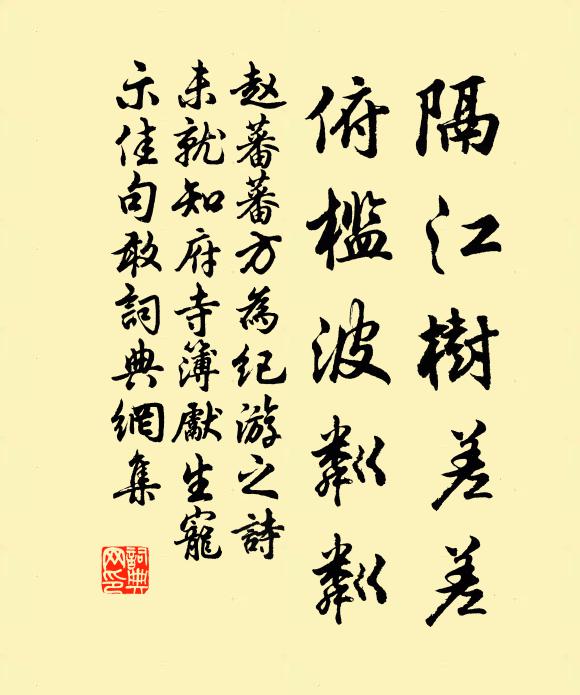 隔江樹差差
俯檻波粼粼
赵蕃蕃方為紀游之詩
未就知府寺簿獻生寵
示佳句敢詞典網集
詞典
网印